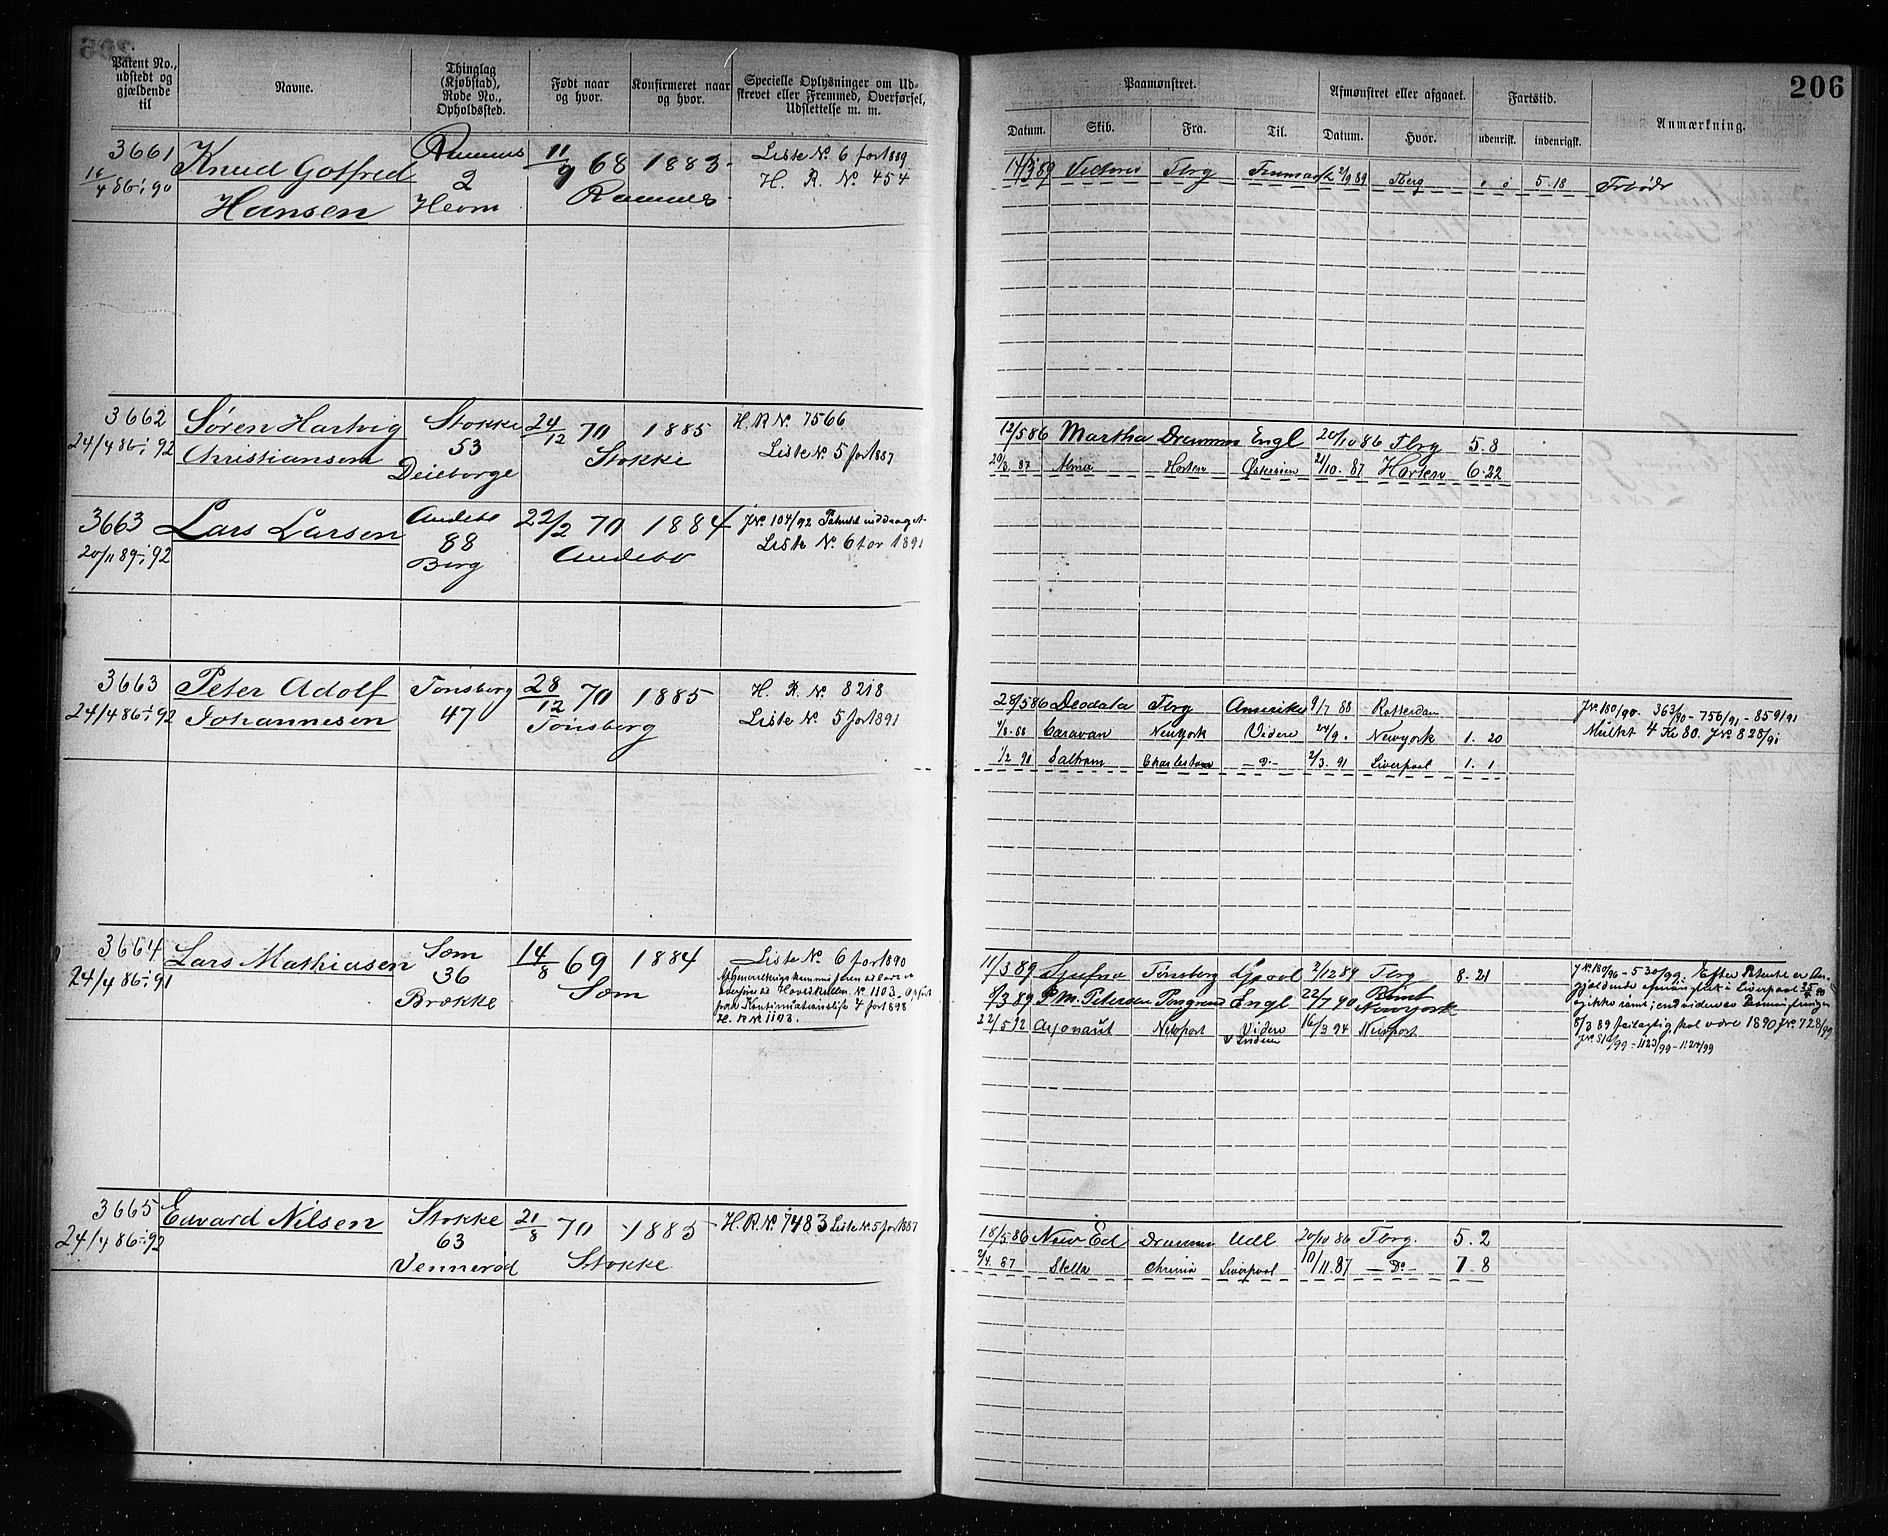 206
Patent No., udstedt og gjældende til
Navne.
Thinglag (Kjøbstad), Rode No., Opholdssted.
Født naar og hvor.
Konfirmeret naar og hvor.
Specielle Oplysninger om Udskrevet eller Fremmed, Overførsel, Udslettelse m. m.
Paamønstret.
Afmønstret eller afgaaet.
Fartstid.
Anmærkning.
Datum. Skib. Fra. Til. Datum. Hvor. udenrigsk. indenrigsk.
3661 Knud Gotfred Ramnes 11/9 68 1883 Liste No 6 for 1889
16/4 86 - 90 Hansen 2 Ramnes H. R. No 454
Hvom
14/3 89 Victoria Tbrg 2/9 89 Tberg 5.18
3662 Søren Hartvig Stokke 24/12 70 1885 H.R.No 7566
24/4 86 - 92 Christiansen 53 Stokke Liste No 5 for 1887
12/5 86 Martha Drammen Engl 20/10 86 Tbrg 5.8
29/3 87 Alma Horten Østersøen 21/10.87 Horten 6.22
3663 Lars Larsen Andebo 22/2 70 1884 J.No 104/92 Patentet inddraget
20/11 89 - 92 88 Andebo Liste No 6 for 1891
Berg
3663 Peter Adolf Tønsberg 28/12 70 1885 H. R. No 8218
24/4 86 - 92 Johannesen 47 Tønsberg Liste No 5 for 1891
28/5 86 Deodata Tbrg Amerika 9/7 88 Rotterdam J.No 180/90 - 363/90 - 756/91 - 859/91
Caravan Newyork Videre 24/9 Newyork 1.20 Mulkt 4 Kr 80. J.No 828/91
1/2 90 Saltram Charlestown - Do - 2/3.91 Liverpool 1.1
3664 Lars Mathiasen Sem 14/8 69 1884 Liste No 6 for 1890
24/4 86 - 91 36 Sem
Brække H. R. No 1103.
11/3 89 Tønsberg 2/12 89 Tbrg 8.21
P.M. Petersen Engl 22/7 90 Rømt Newyork
22/5 92 Newport Videre 16/3 94 Newport
3665 Edvard Nilsen Stokke 21/8 70 1885 H.R.No 7483 Liste No 5 for 1887
24/4 86 - 92 63 Stokke
Vennerød
18/5 86 New Ed Drammen Udl 20/10 86 Tbrg. 5.2
2/4.87 Stella Chrnia Liverpool 10/11.87 - Do - 7.8